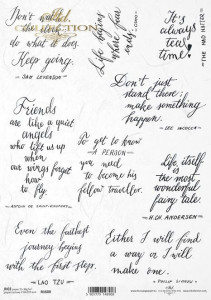 Don't watch
the clock;
do what it does.
Keep going.
~ SAM LEVENSON
Life begins
where fear
ends
It's
always
tea
time!
THE MAD HATTER
Don't just
stand there
make something
happen.
LEE IACOCCA
Friends
are like a quiet
angels
who lift us up
when
our wings forget
how
to fly.
ANTOINE DE SAINT-EXUPÉRY
To get to know
A PERSON
you need
to become his
fellow traveller.
Life itself
is the most
wonderful
fairy tale.
~ H.CH. ANDERSEN
Even the farthest
journey begins
with the first step.
~ LAO TZU ~
Either I will find
a way, or I will
make one.
~ PHILIP SIDNEY ~